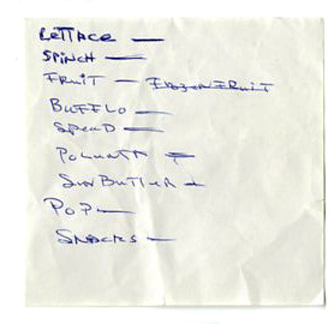 LETTACE —
SPINCH —
FRUIT — FROZEN FRUIT
BUFFLO —
SPEAD —
POLUNTA —
SUN BUTTUR —
POP —
SNACKS —